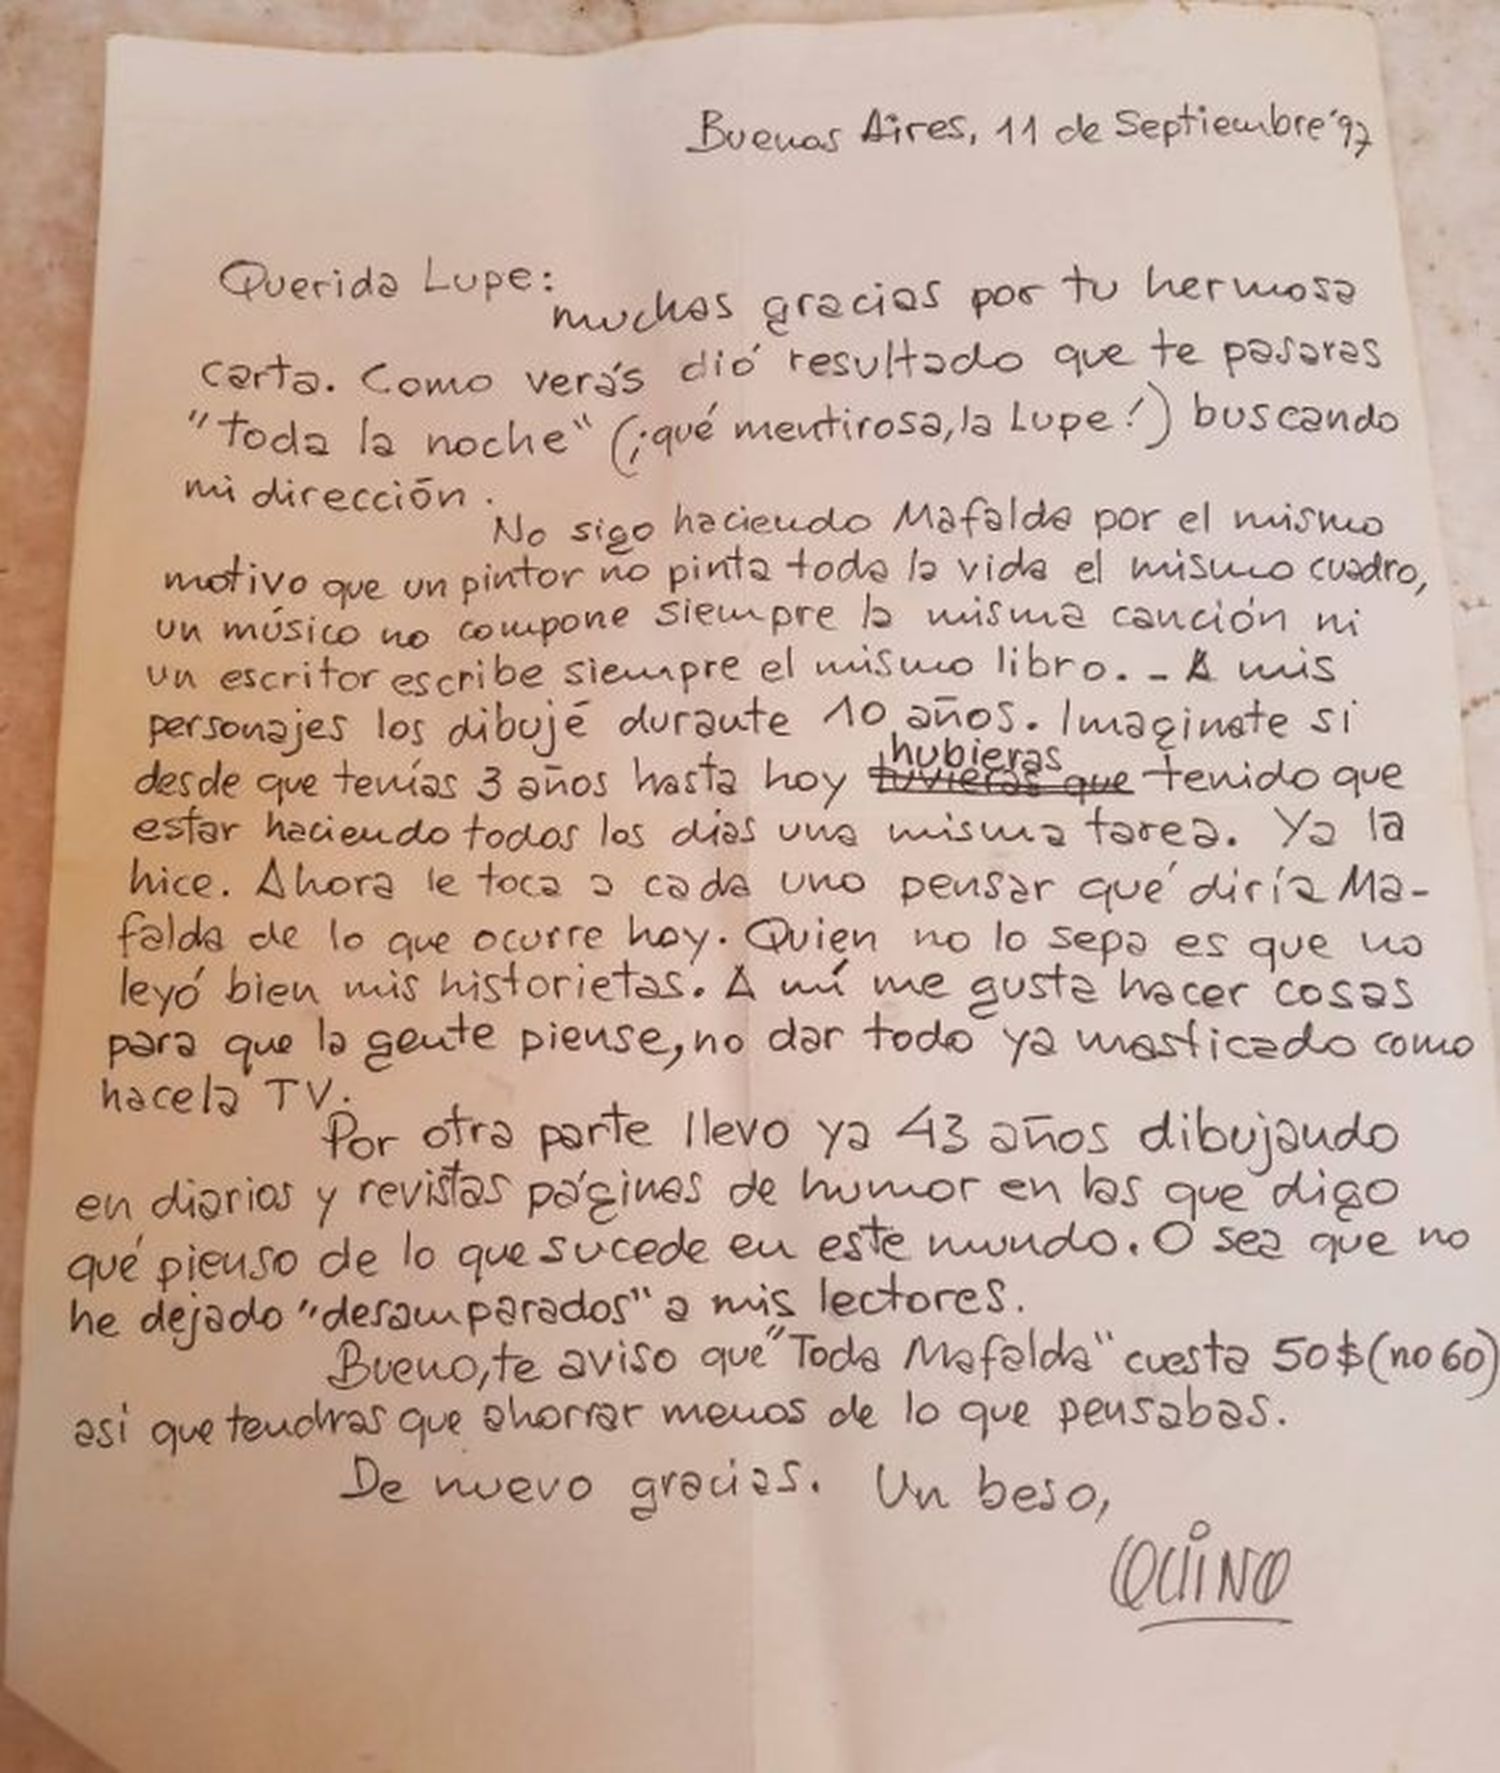 Buenos Aires, 11 de Septiembre '97
Querida Lupe:
muchas gracias por tu hermosa
carta. Como verás dió resultado que te pasaras
"toda la noche" (¡qué mentirosa, la Lupe!) buscando
mi dirección.
No sigo haciendo Mafalda por el mismo
motivo que un pintor no pinta toda la vida el mismo cuadro,
un músico no compone siempre la misma canción ni
un escritor escribe siempre el mismo libro. - A mis
personajes los dibujé durante 10 años. Imaginate si
desde que tenías 3 años hasta hoy tuvieras que hubieras tenido que
estar haciendo todos los días una misma tarea. Ya la
hice. Ahora le toca a cada uno pensar qué diría Ma-
falda de lo que ocurre hoy. Quien no lo sepa es que no
leyó bien mis historietas. A mí me gusta hacer cosas
para que la gente piense, no dar todo ya masticado como
hace la TV.
Por otra parte llevo ya 43 años dibujando
en diarios y revistas páginas de humor en las que digo
qué pienso de lo que sucede en este mundo. O sea que no
he dejado "desamparados" a mis lectores.
Bueno, te aviso que "Toda Mafalda" cuesta 50$ (no 60)
asi que tendras que ahorrar menos de lo que pensabas.
De nuevo gracias. Un beso,
QUINO